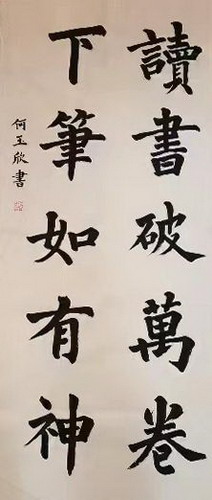 讀書破萬卷
下筆如有神
何玉欣書